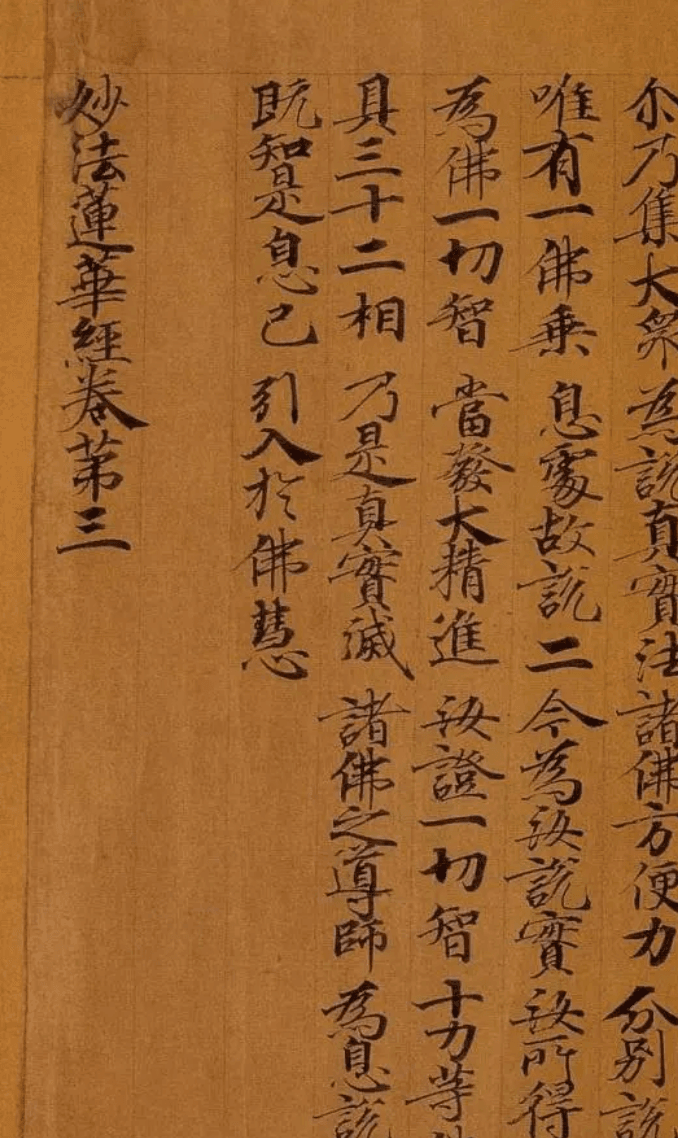 尒乃集大衆 為說真實法 諸佛方便力 分別說
唯有一佛乗 息處故說二 今為汝說實 汝所得
為佛一切智 當發大精進 汝證一切智 十力等
具三十二相 乃是真實滅 諸佛之導師 為息說
既知是息已 引入於佛慧
妙法蓮華經卷苐三